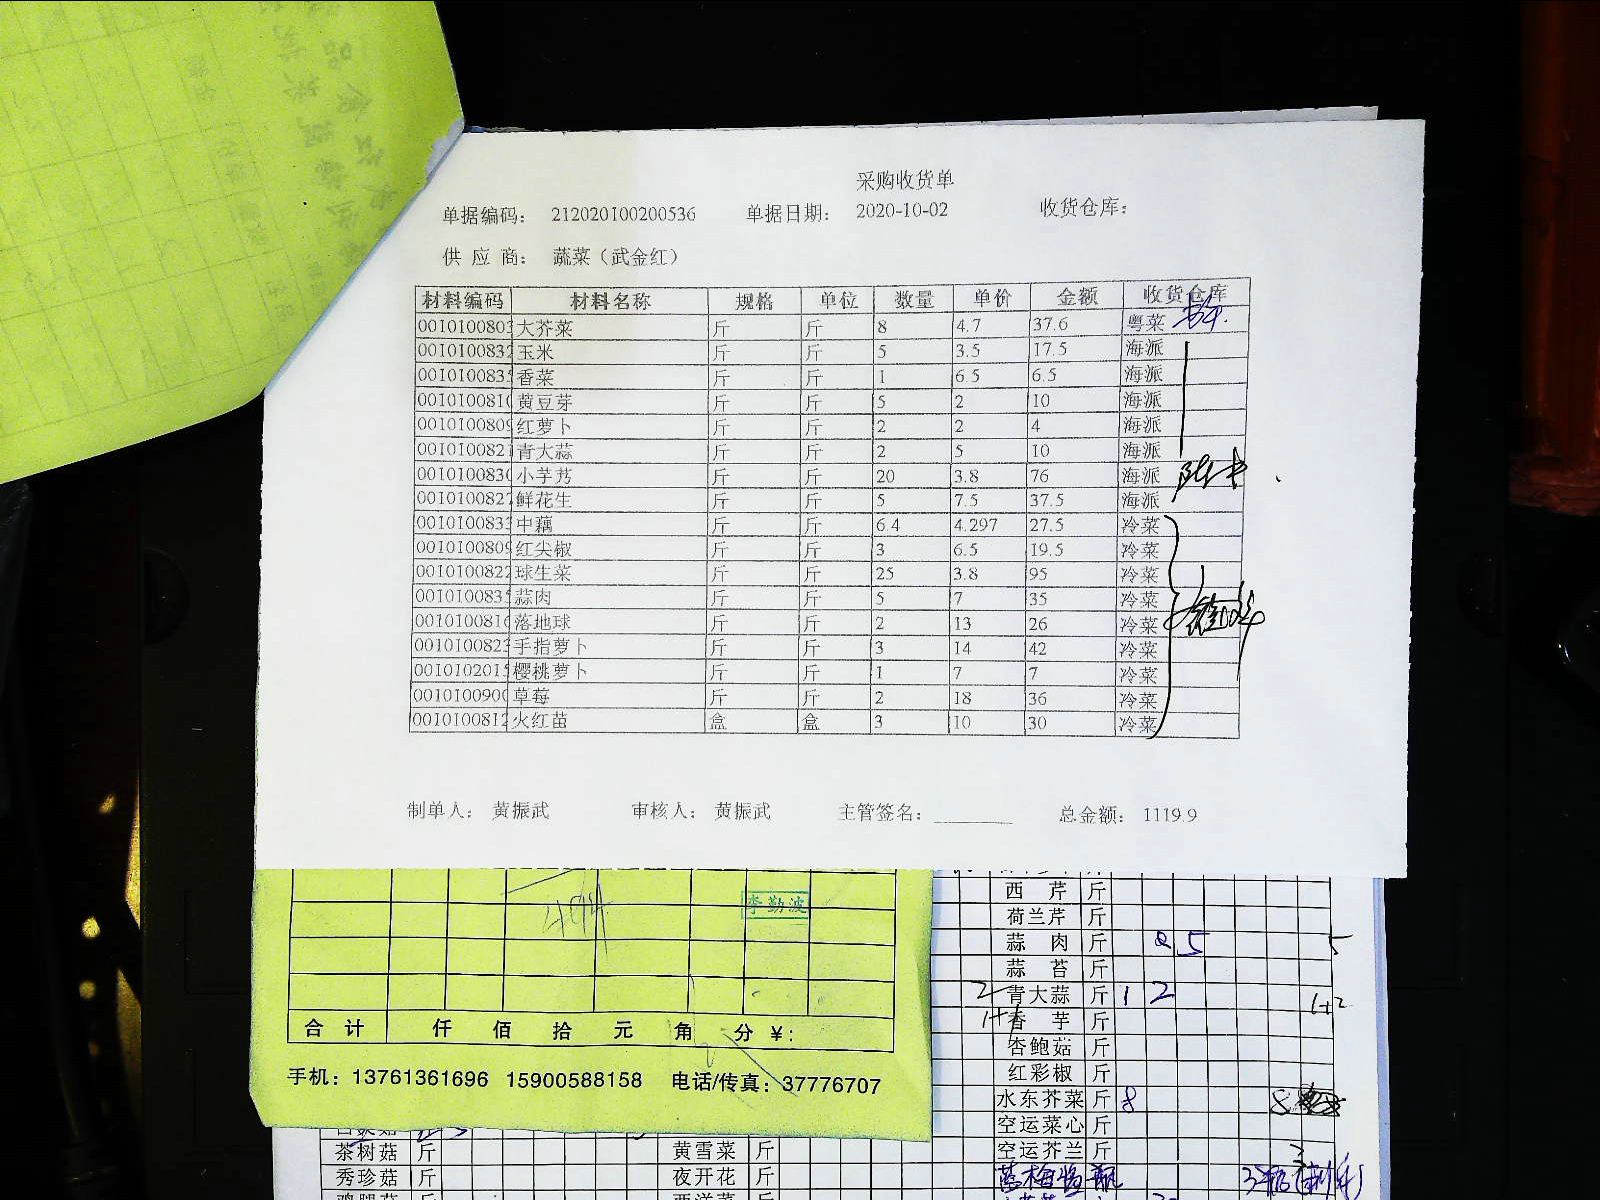 采购收货单
单据编码： 212020100200536 单据日期： 2020-10-02 收货仓库：
供 应 商： 蔬菜（武金红）
材料编码 材料名称 规格 单位 数量 单价 金额 收货仓库
0010100803 大芥菜 斤 斤 8 4.7 37.6 粤菜
0010100832 玉米 斤 斤 5 3.5 17.5 海派
001010083 香菜 斤 斤 1 6.5 6.5 海派
001010081 黄豆芽 斤 斤 5 2 10 海派
0010100809 红萝卜 斤 斤 2 2 4 海派
001010082 青大蒜 斤 斤 2 5 10 海派
001010083 小芋艿 斤 斤 20 3.8 76 海派
0010100827 鲜花生 斤 斤 5 7.5 37.5 海派
0010100833 中藕 斤 斤 6.4 4.297 27.5 冷菜
0010100809 红尖椒 斤 斤 3 6.5 19.5 冷菜
0010100822 球生菜 斤 斤 25 3.8 95 冷菜
001010083 蒜肉 斤 斤 5 7 35 冷菜
001010081 落地球 斤 斤 2 13 26 冷菜
0010100823 手指萝卜 斤 斤 3 14 42 冷菜
001010201 樱桃萝卜 斤 斤 1 7 7 冷菜
001010090 草莓 斤 斤 2 18 36 冷菜
0010100812 火红苗 盒 盒 3 10 30 冷菜
制单人： 黄振武 审核人： 黄振武 主管签名： 总金额： 1119.9
李勤波
合 计 仟 佰 拾 元 角 分 ¥：
手机：13761361696 15900588158 电话/传真：37776707
西 芹 斤
荷兰芹 斤
蒜 肉 斤 5 5
蒜 苔 斤
2 青大蒜 斤 1 2 1+2
香 芋 斤
杏鲍菇 斤
红彩椒 斤
水东芥菜 斤 8 8
空运菜心 斤
空运芥兰 斤
茶树菇 斤 黄雪菜 斤
秀珍菇 斤 夜开花 斤